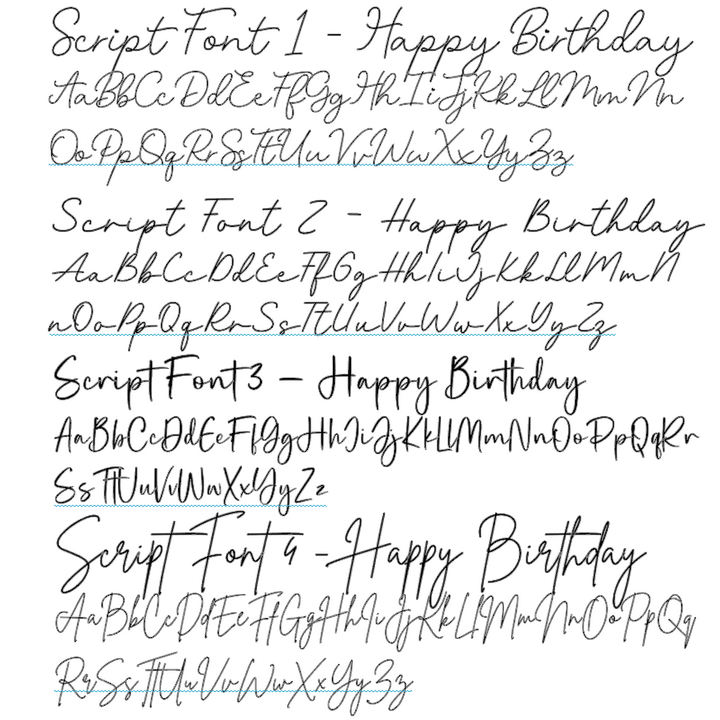 Script Font 1 - Happy Birthday
AaBbCcDdEeFfGgHhIiJjKkLlMmNn
OoPpQqRrSsTtUuVvWwXxYyZz
Script Font 2 - Happy Birthday
AaBbCcDdEeFfGgHhIiJjKkLlMmN
nOoPpQqRrSsTtUuVvWwXxYyZz
Script Font 3 - Happy Birthday
AaBbCcDdEeFfGgHhIiJjKkLlMmNnOoPpQqRr
SsTtUuVvWwXxYyZz
Script Font 4 - Happy Birthday
AaBbCcDdEeFfGgHhIiJjKkLlMmNnOoPpQq
RrSsTtUuVvWwXxYyZz